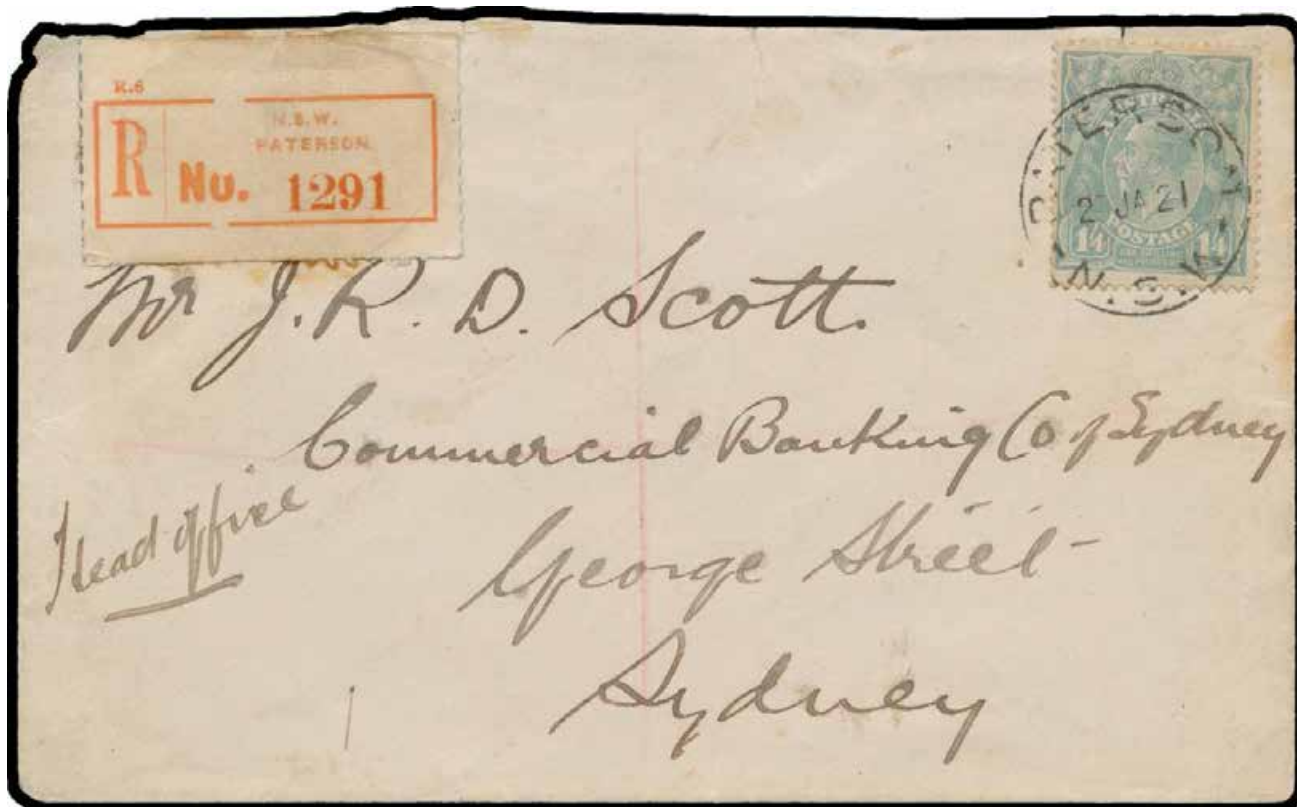 R.6
N.S.W.
PATERSON
R No. 1291
PATERSON
2 JA 21
N.S.W
POSTAGE
1/4 1/4
Mr J. R. D. Scott.
Commercial Banking Co of Sydney
Head office
George Street
Sydney